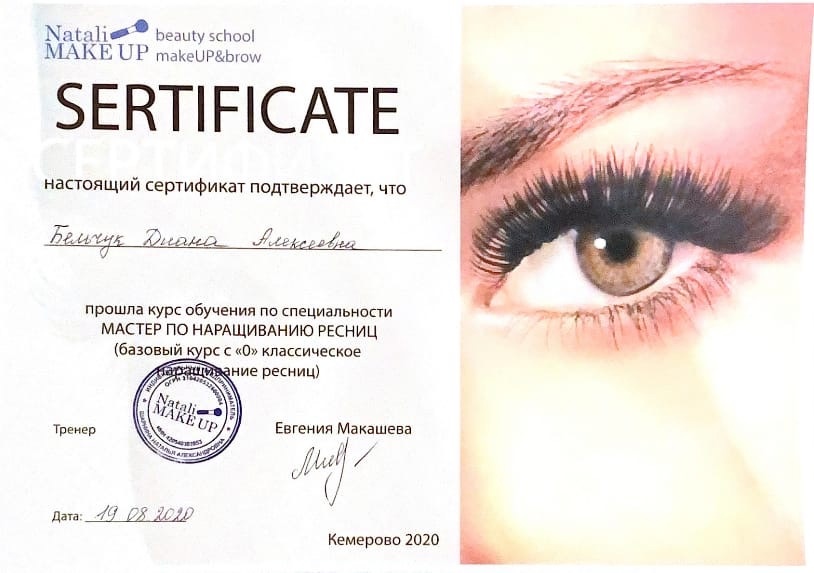 Natali
MAKE UP
beauty school
makeUP&brow
SERTIFICATE
СЕРТИФИКАТ
настоящий сертификат подтверждает, что
Бельчук Диана Алексеевна
прошла курс обучения по специальности
МАСТЕР ПО НАРАЩИВАНИЮ РЕСНИЦ
(базовый курс с «0» классическое
наращивание ресниц)
ИНДИВИДУАЛЬНЫЙ ПРЕДПРИНИМАТЕЛЬ
Natali
MAKE UP
НАТАЛЬЯ АЛЕКСАНДРОВНА
Тренер
Евгения Макашева
Дата: 19 08 2020
Кемерово 2020